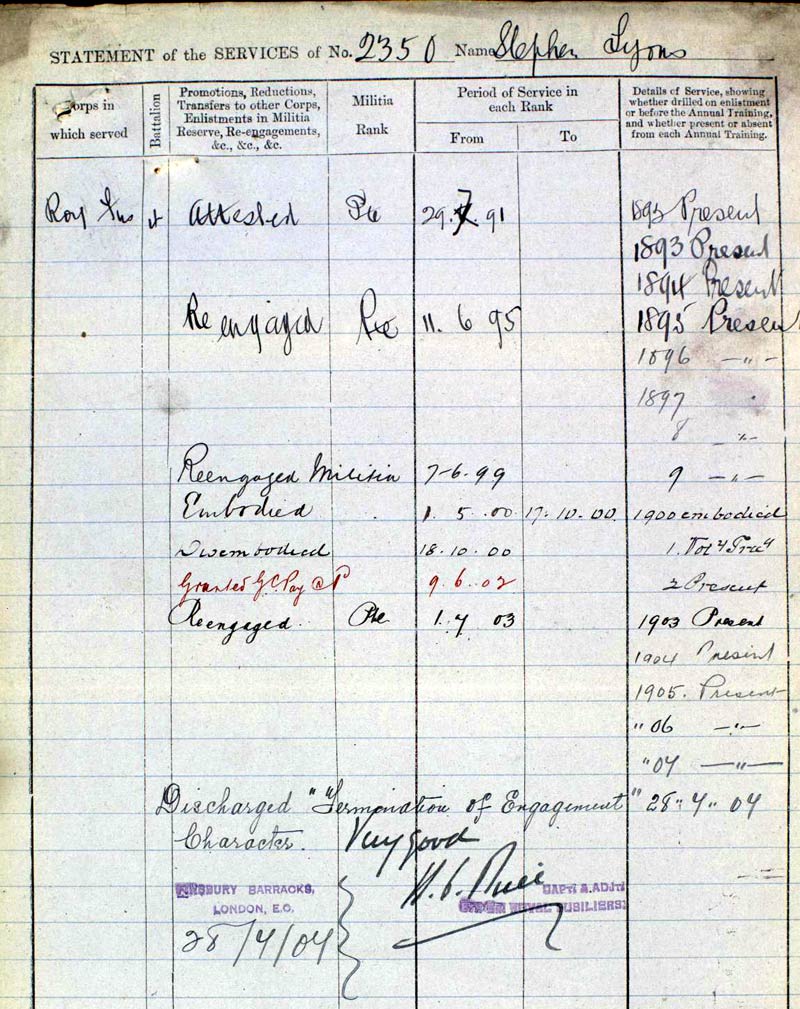 STATEMENT of the SERVICES of No. 2350 Name Stephen Lyons
Corps in
which served
Battalion
Promotions, Reductions,
Transfers to other Corps,
Enlistments in Militia
Reserve, Re-engagements,
&c., &c., &c.
Militia
Rank
Period of Service in
each Rank
From
To
Details of Service, showing
whether drilled on enlistment
or before the Annual Training,
and whether present or absent
from each Annual Training.
Roy Fus Attested Pte 29.7.91 Present
1893 Present
1894 Present
Re engaged Pte 11. 6 95 1895 Present
1896 — " —
1897 "
8 — " —
Reengaged Militia 7-6-99 9 — " —
Embodied 1 5 00 17.10.00. 1900 embodied
Disembodied 18.10.00 1.
Granted G C Pay @ 9.6.02 2 Present
Reengaged. Pte 1.7 03 1903 Present
1904 Present
1905. Present
" 06 — " —
" 07 — " —
Discharged "Termination of Engagement" 28" 7" 07
Character. Very good
BARRACKS,
LONDON, E.C.
28/7/07
CAPT: & ADJT:
ROYAL FUSILIERS